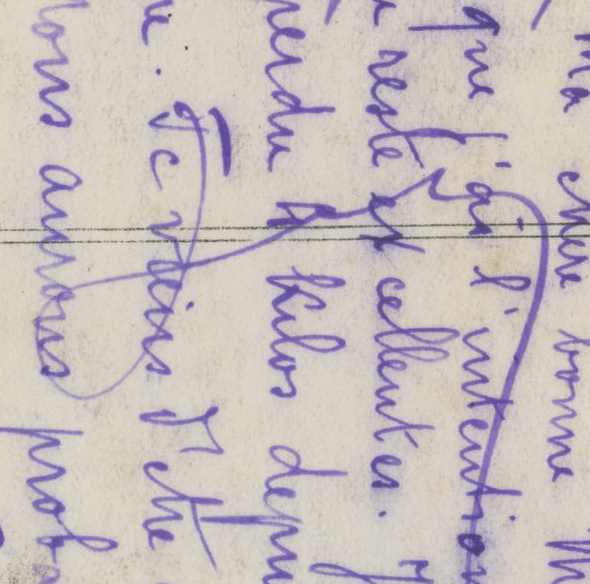 ma chère bonne
que j'ai l'intention
reste excellentes.
perdu 4 kilos depu
Je viens d'être
nous aurons prob